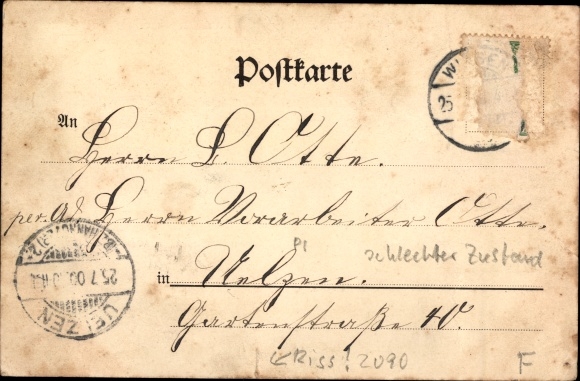 Postkarte
W
25
An
Herrn L. Otte.
per. Ad. Herrn Vorarbeiter Otte.
schlechter Zustand
in Uelzen.
Gartenstraße 40.
(HANNOVER)
25.7.00
UELZEN
Riss! 2090
F